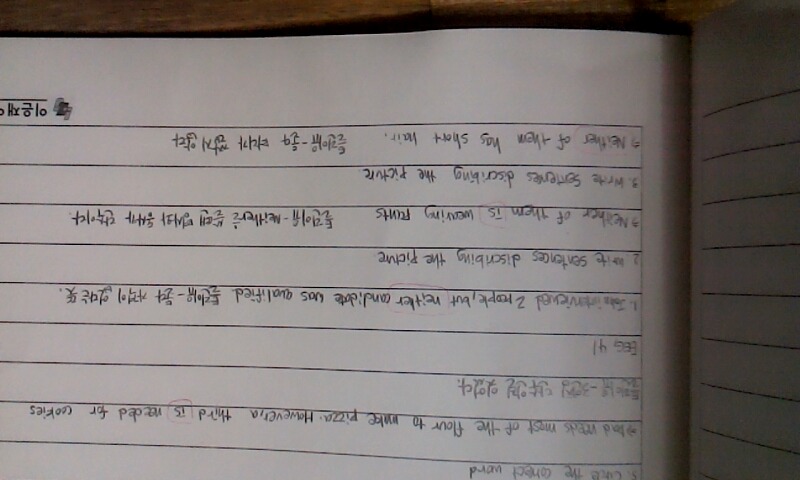 5. Circle the correct word
→ Dad needs most of the flour to make pizza. However, a third is needed for cookies
틀린이유-
EEG 41
1. John interviewed 2 people, but neither candidate was qualified. 틀린이유-둘다 자격이 없다는 뜻.
2. write sentences discribing the picture
→ Neither of them is wearing pants 틀린이유-Neither는
3. write sentences discribing the picture
→ Neither of them has short hair. 틀린이유-둘다 머리가 짧지 않다
이응재